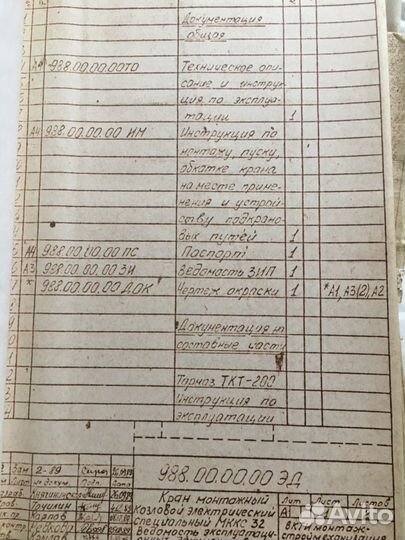 Документация
общая
А4 988.00.00.00ТО Техническое опи-
сание и инструк-
ция по эксплуа-
тации 1
А4 988.00.00.00 ИМ Инструкция по
монтажу, пуску,
обкатке крана
на месте приме-
нения и устрой-
ству подкрано-
вых путей 1
А4 988.00.00.00 ПС Паспорт 1
А3 988.00.00.00 ЗИ Ведомость ЗИП 1
* 988.00.00.00 ДОК Чертеж окраски 1 *А1, А3(2), А2
Документация на
составные части
Тормоз ТКТ-200
Инструкция по
эксплуатации
Зам. 2-89
№ докум. Подп. Дата
988.00.00.00 ЭД
Кран монтажный
козловой электрический
специальный МККС 32
Ведомость эксплуатаци-
Лит. Лист Листов
А1
ВКТИмонтаж-
строймеханизация
Avito